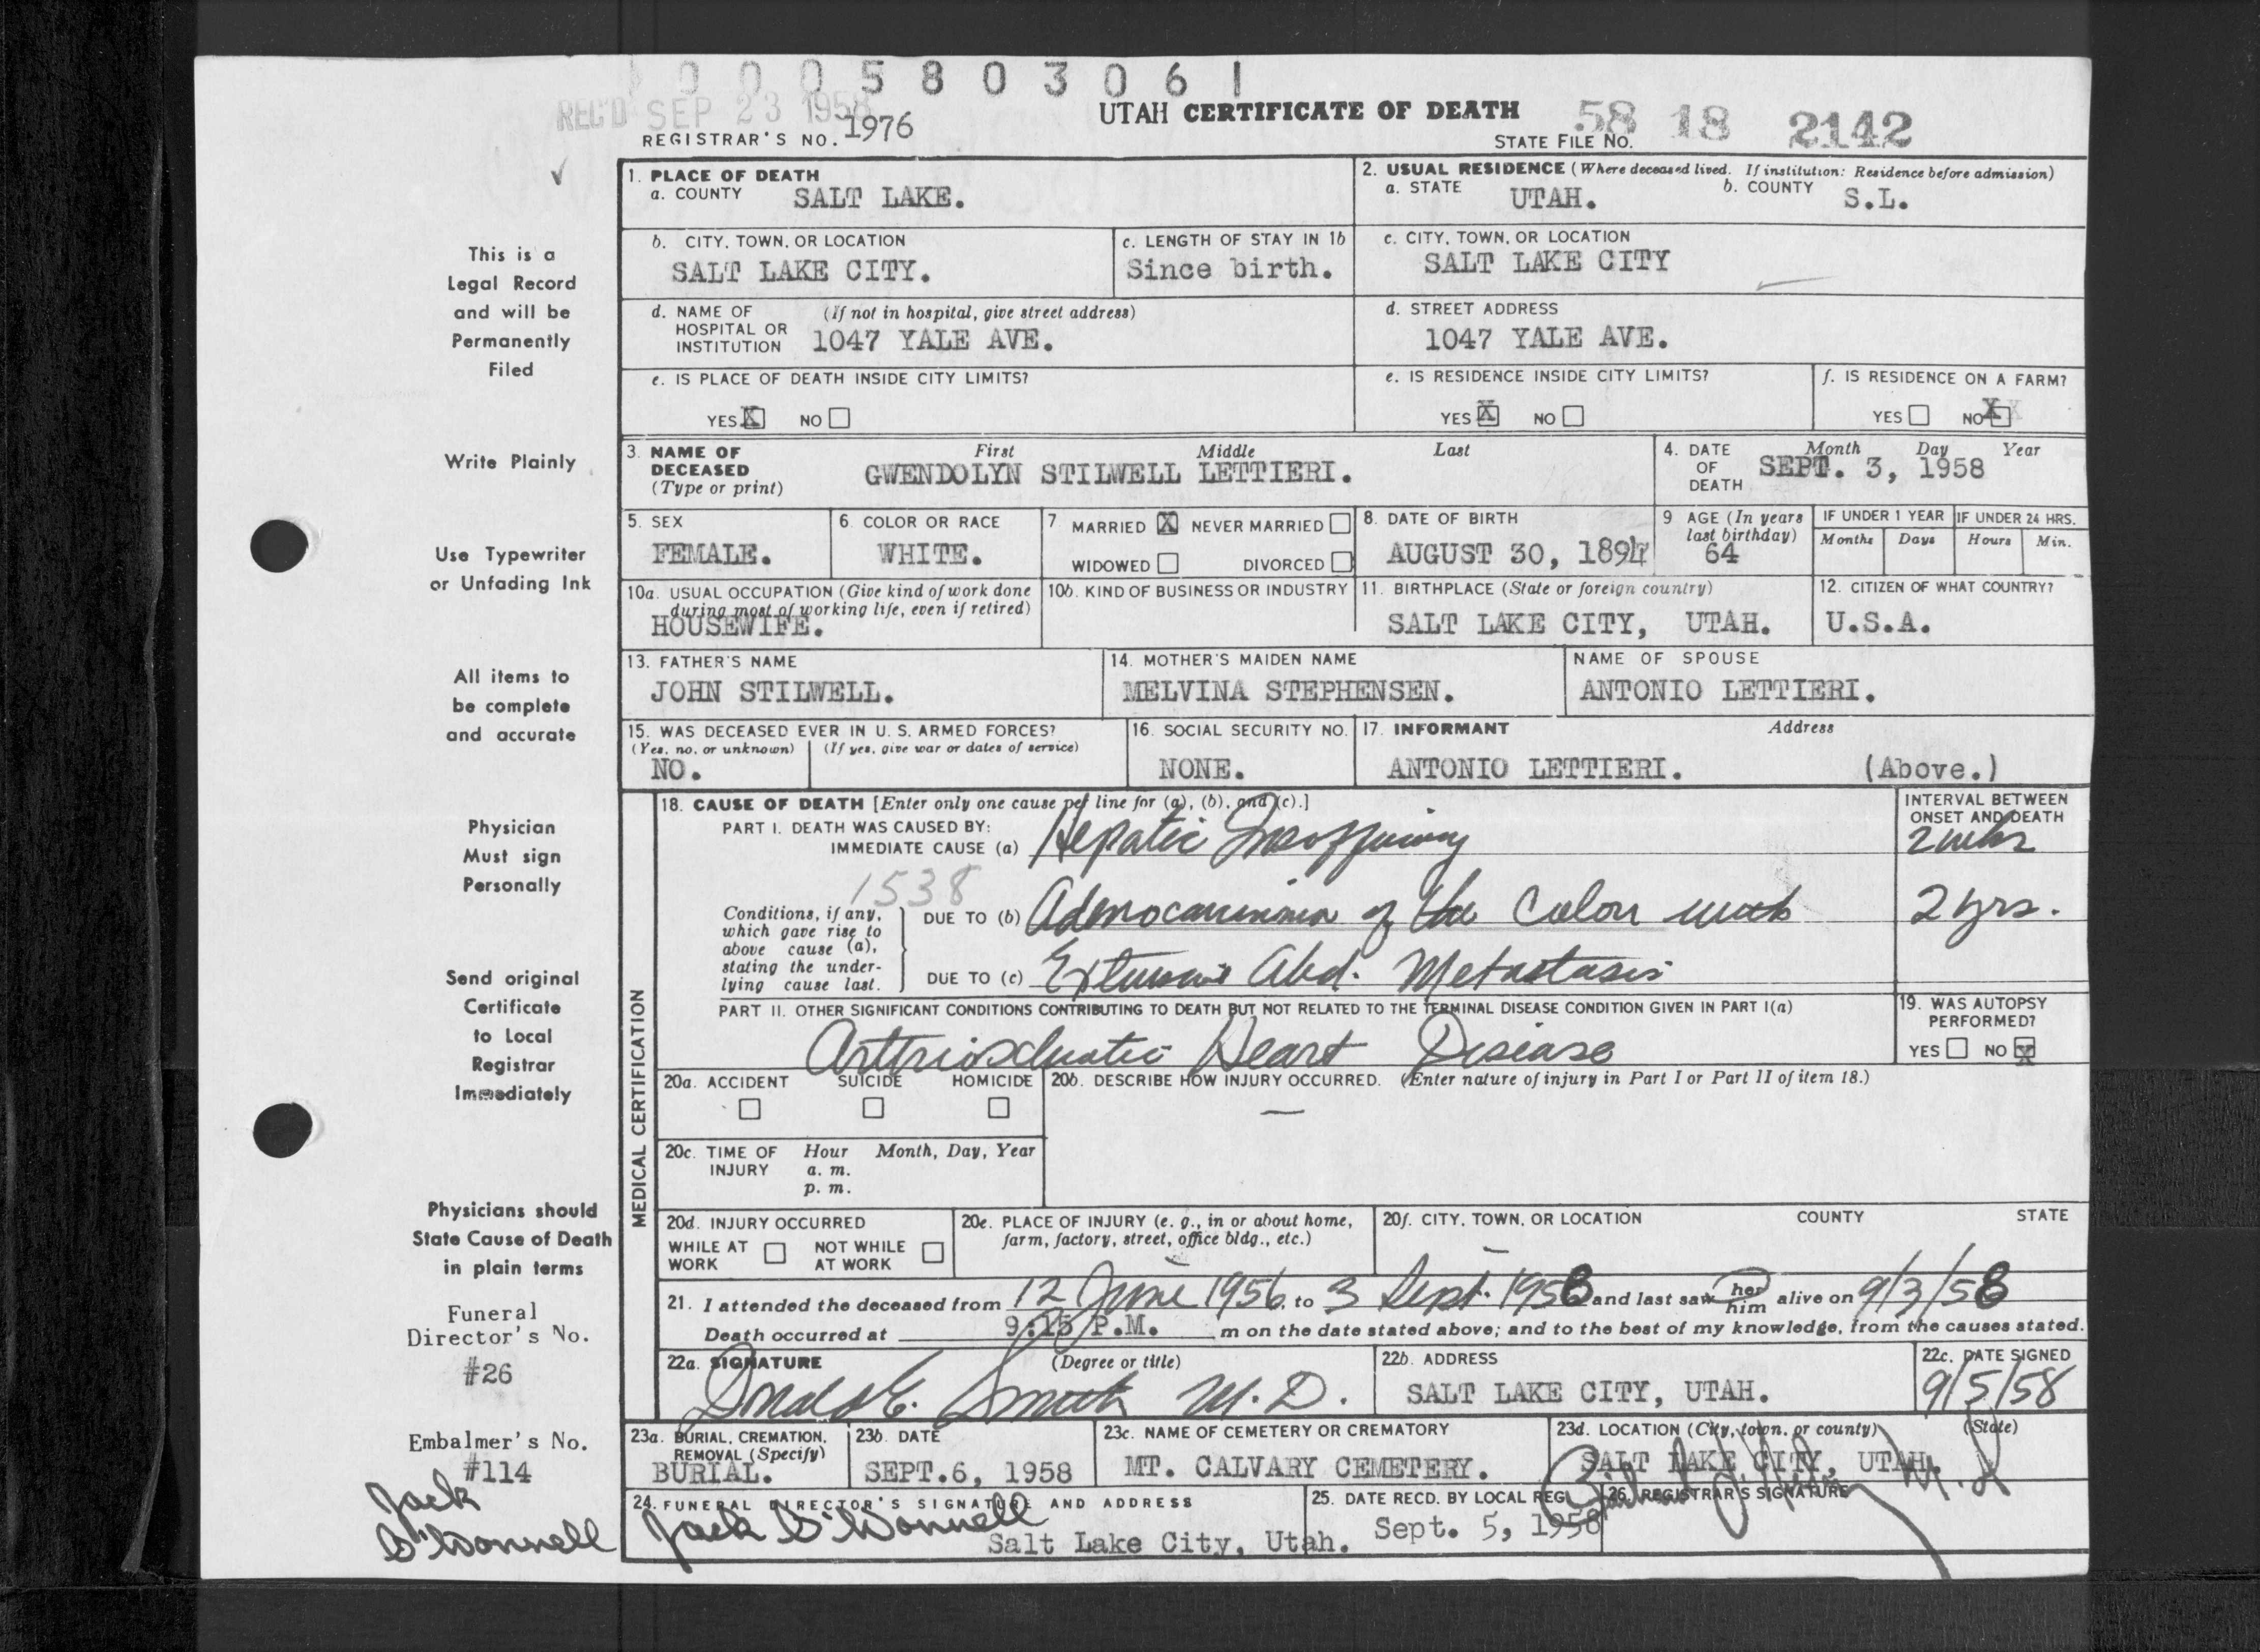 0 0 0 5 8 0 3 0 6 1
REC'D SEP 23 1958
UTAH CERTIFICATE OF DEATH
58 18 2142
REGISTRAR'S NO. 1976
STATE FILE NO.
1. PLACE OF DEATH
a. COUNTY SALT LAKE.
2. USUAL RESIDENCE (Where deceased lived. If institution: Residence before admission)
a. STATE UTAH. b. COUNTY S.L.
b. CITY, TOWN, OR LOCATION
SALT LAKE CITY.
c. LENGTH OF STAY IN 1b
Since birth.
c. CITY, TOWN, OR LOCATION
SALT LAKE CITY
d. NAME OF HOSPITAL OR INSTITUTION (If not in hospital, give street address)
1047 YALE AVE.
d. STREET ADDRESS
1047 YALE AVE.
e. IS PLACE OF DEATH INSIDE CITY LIMITS?
YES X NO
e. IS RESIDENCE INSIDE CITY LIMITS?
YES X NO
f. IS RESIDENCE ON A FARM?
YES NO X
3. NAME OF DECEASED (Type or print)
First Middle Last
GWENDOLYN STILWELL LETTIERI.
4. DATE OF DEATH
Month Day Year
SEPT. 3, 1958
5. SEX
FEMALE.
6. COLOR OR RACE
WHITE.
7 MARRIED X NEVER MARRIED
WIDOWED DIVORCED
8. DATE OF BIRTH
AUGUST 30, 1894
9 AGE (In years last birthday)
64
IF UNDER 1 YEAR
Months Days
IF UNDER 24 HRS.
Hours Min.
10a. USUAL OCCUPATION (Give kind of work done during most of working life, even if retired)
HOUSEWIFE.
10b. KIND OF BUSINESS OR INDUSTRY
11. BIRTHPLACE (State or foreign country)
SALT LAKE CITY, UTAH.
12. CITIZEN OF WHAT COUNTRY?
U.S.A.
13. FATHER'S NAME
JOHN STILWELL.
14. MOTHER'S MAIDEN NAME
MELVINA STEPHENSEN.
NAME OF SPOUSE
ANTONIO LETTIERI.
15. WAS DECEASED EVER IN U. S. ARMED FORCES?
(Yes, no, or unknown) (If yes, give war or dates of service)
NO.
16. SOCIAL SECURITY NO.
NONE.
17. INFORMANT Address
ANTONIO LETTIERI. (Above.)
MEDICAL CERTIFICATION
18. CAUSE OF DEATH [Enter only one cause per line for (a), (b), and (c).]
INTERVAL BETWEEN ONSET AND DEATH
PART I. DEATH WAS CAUSED BY:
IMMEDIATE CAUSE (a) Hepatic Insufficiency 2 wks
1538
Conditions, if any, which gave rise to above cause (a), stating the underlying cause last.
DUE TO (b) Adenocarcinoma of the Colon with 2 yrs.
DUE TO (c) Extensive Abd. Metastasis
PART II. OTHER SIGNIFICANT CONDITIONS CONTRIBUTING TO DEATH BUT NOT RELATED TO THE TERMINAL DISEASE CONDITION GIVEN IN PART I(a)
Arteriosclerotic Heart Disease
19. WAS AUTOPSY PERFORMED?
YES NO X
20a. ACCIDENT SUICIDE HOMICIDE
20b. DESCRIBE HOW INJURY OCCURRED. (Enter nature of injury in Part I or Part II of item 18.)
—
20c. TIME OF INJURY Hour Month, Day, Year
a. m.
p. m.
20d. INJURY OCCURRED
WHILE AT WORK NOT WHILE AT WORK
20e. PLACE OF INJURY (e. g., in or about home, farm, factory, street, office bldg., etc.)
20f. CITY, TOWN, OR LOCATION COUNTY STATE
21. I attended the deceased from 12 June 1956, to 3 Sept. 1958 and last saw her him alive on 9/3/58
Death occurred at 9:15 P.M. m on the date stated above; and to the best of my knowledge, from the causes stated.
22a. SIGNATURE (Degree or title)
Donald E. Smith M.D.
22b. ADDRESS
SALT LAKE CITY, UTAH.
22c. DATE SIGNED
9/5/58
23a. BURIAL, CREMATION, REMOVAL (Specify)
BURIAL.
23b. DATE
SEPT.6, 1958
23c. NAME OF CEMETERY OR CREMATORY
MT. CALVARY CEMETERY.
23d. LOCATION (City, town, or county) (State)
SALT LAKE CITY, UTAH.
24. FUNERAL DIRECTOR'S SIGNATURE AND ADDRESS
Jack O'Donnell
Salt Lake City, Utah.
25. DATE RECD. BY LOCAL REG.
Sept. 5, 1958
26. REGISTRAR'S SIGNATURE
This is a
Legal Record
and will be
Permanently
Filed
Write Plainly
Use Typewriter
or Unfading Ink
All items to
be complete
and accurate
Physician
Must sign
Personally
Send original
Certificate
to Local
Registrar
Immediately
Physicians should
State Cause of Death
in plain terms
Funeral
Director's No.
#26
Embalmer's No.
#114
Jack
O'Donnell